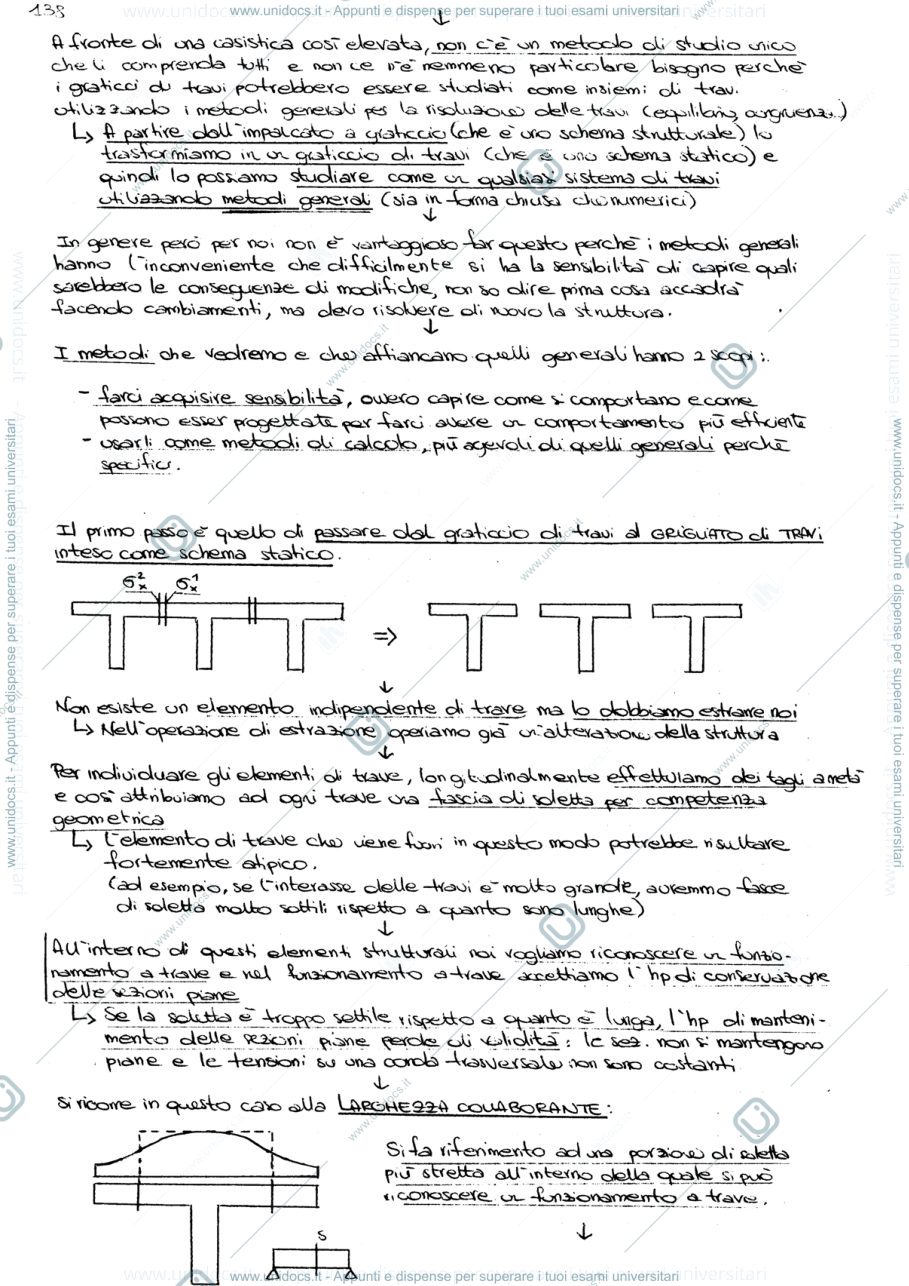 138
www.unidocs.it - Appunti e dispense per superare i tuoi esami universitari
A fronte di una casistica così elevata, non c'è un metodo di studio unico
che li comprenda tutti e non ce n'è nemmeno particolare bisogno perchè
i graticci di travi potrebbero essere studiati come insiemi di travi
utilizzando i metodi generali per la risoluzione delle travi (equilibrio, congruenza..)
↳ A partire dall'impalcato a graticcio (che è uno schema strutturale) lo
trasformiamo in un graticcio di travi (che è uno schema statico) e
quindi lo possiamo studiare come un qualsiasi sistema di travi
utilizzando metodi generali (sia in forma chiusa che numerici)
↓
In genere però per noi non è vantaggioso far questo perchè i metodi generali
hanno l'inconveniente che difficilmente si ha la sensibilità di capire quali
sarebbero le conseguenze di modifiche, non so dire prima cosa accadrà
facendo cambiamenti, ma devo risolvere di nuovo la struttura.
↓
I metodi che vedremo e che affiancano quelli generali hanno 2 scopi:
- farci acquisire sensibilità, ovvero capire come si comportano e come
possono esser progettate per farci avere un comportamento più efficiente
- usarli come metodi di calcolo, più agevoli di quelli generali perchè
specifici.
Il primo passo è quello di passare dal graticcio di travi al GRIGLIATO di TRAVI
inteso come schema statico.
σx² σx¹
⇒
↓
Non esiste un elemento indipendente di trave ma lo dobbiamo estrarre noi
↳ Nell'operazione di estrazione operiamo già un'alterazione della struttura
↓
Per individuare gli elementi di trave, longitudinalmente effettuiamo dei tagli a metà
e così attribuiamo ad ogni trave una fascia di soletta per competenza
geometrica
↳ L'elemento di trave che viene fuori in questo modo potrebbe risultare
fortemente atipico.
(ad esempio, se l'interasse delle travi è molto grande, avremmo fasce
di soletta molto sottili rispetto a quanto sono lunghe)
↓
All'interno di questi elementi strutturali noi vogliamo riconoscere un funzio-
namento a trave e nel funzionamento a trave accettiamo l'hp di conservazione
delle sezioni piane
↳ Se la soletta è troppo sottile rispetto a quanto è lunga, l'hp di manteni-
mento delle sezioni piane perde di validità: le sez. non si mantengono
piane e le tensioni su una corda trasversale non sono costanti
↓
Si ricorre in questo caso alla LARGHEZZA COLLABORANTE:
Si fa riferimento ad una porzione di soletta
più stretta all'interno della quale si può
riconoscere un funzionamento a trave.
↓
S
www.unidocs.it - Appunti e dispense per superare i tuoi esami universitari